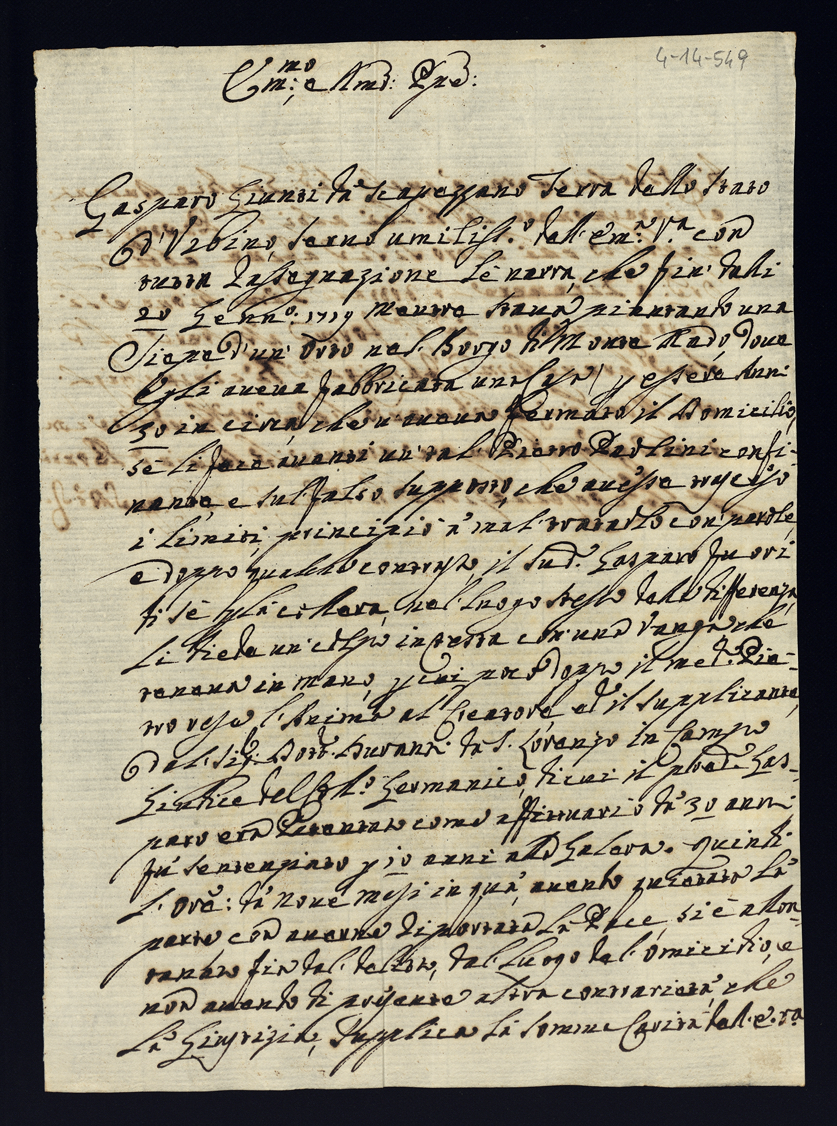 4-14-549
Em:mo e Rmo: Pne:
Gasparo Giunti da Scapezzano Terra dello Stato
d'Vrbino, seruo umiliss.o dell'em:a V.a con
tutta rassegnazione le narra, che fin' dalli
20 Genn.o 1719 mentre staua piantando una
Siepe d'un' Orto nel Borgo di Monte Rado, doue
Egli aueua fabbricata una Casa, e p esser Anni
30 in circa, che u'aueua fermato il Domicilio,
se li fece auanti un' tal' Pietro Paolini confi-
nante, e sul falso supposto, che auesse trapasso
i limiti, principiò a' mal trattarlo con parole,
e doppo qualche contrasto, il sud.o Gasparo fuori
di sé p la collera, nel luogo stesso della differenza
li diede un' colpo in testa con una Vanga che
teneua in mano, p cui poco doppo il med.o Pie-
tro rese l'Anima al Creatore, ed il supplicante
dal Sig.r Dott. Duranti da S. Lorenzo in Campo
Giudice del Coll.o Germanico, di cui il pred.o Gas-
paro era Vicentato come affittuario da 30 anni
fu' sentenziato p 10 anni alla Galera. Quindi
l'Ore: da noue mesi in quà, auendo quietato la
parte con auerne riportata la Pace, si è allon-
tanato fin dal' delitto, dal' luogo del' omicidio, e
non auendo di presente altra contrarietà, che
la Giustizia, supplica la somma Carità dell'e. V.a